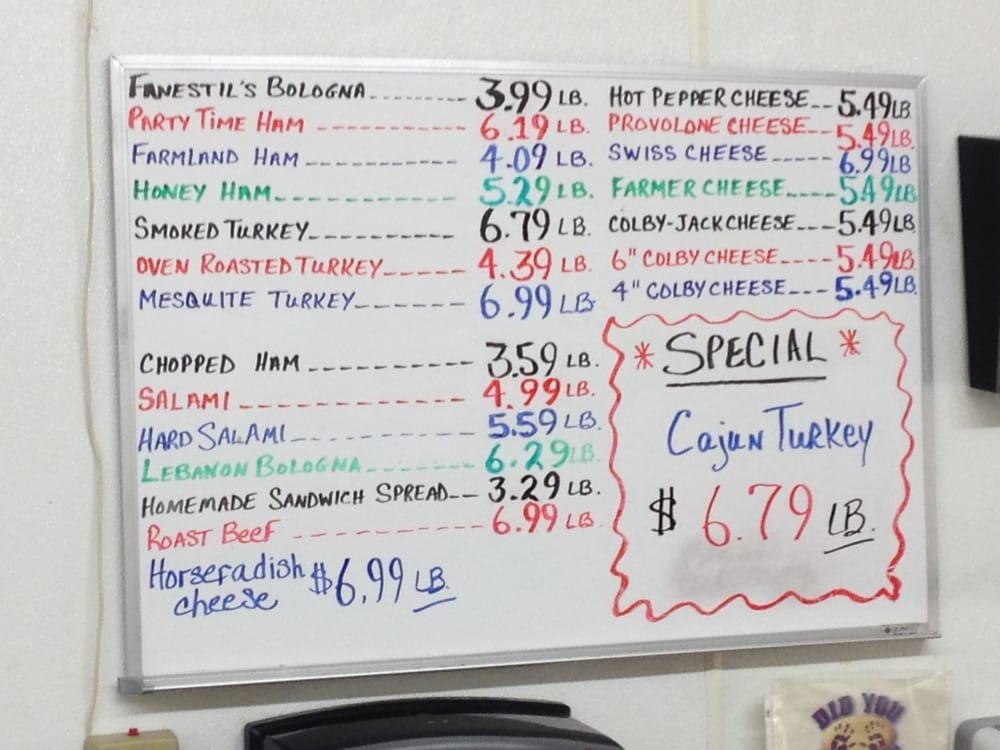 FANESTIL'S BOLOGNA 3.99 LB.
PARTY TIME HAM 6.19 LB.
FARMLAND HAM 4.09 LB.
HONEY HAM 5.29 LB.
SMOKED TURKEY 6.79 LB.
OVEN ROASTED TURKEY 4.39 LB.
MESQUITE TURKEY 6.99 LB.
CHOPPED HAM 3.59 LB.
SALAMI 4.99 LB.
HARD SALAMI 5.59 LB.
LEBANON BOLOGNA 6.29 LB.
HOMEMADE SANDWICH SPREAD 3.29 LB.
ROAST BEEF 6.99 LB
Horseradish $6.99 LB.
cheese
HOT PEPPER CHEESE 5.49 LB
PROVOLONE CHEESE 5.49 LB
SWISS CHEESE 6.99 LB
FARMER CHEESE 5.49 LB
COLBY-JACK CHEESE 5.49 LB
6" COLBY CHEESE 5.49 LB
4" COLBY CHEESE 5.49 LB.
* SPECIAL *
Cajun Turkey
$ 6.79 LB.
DID YOU